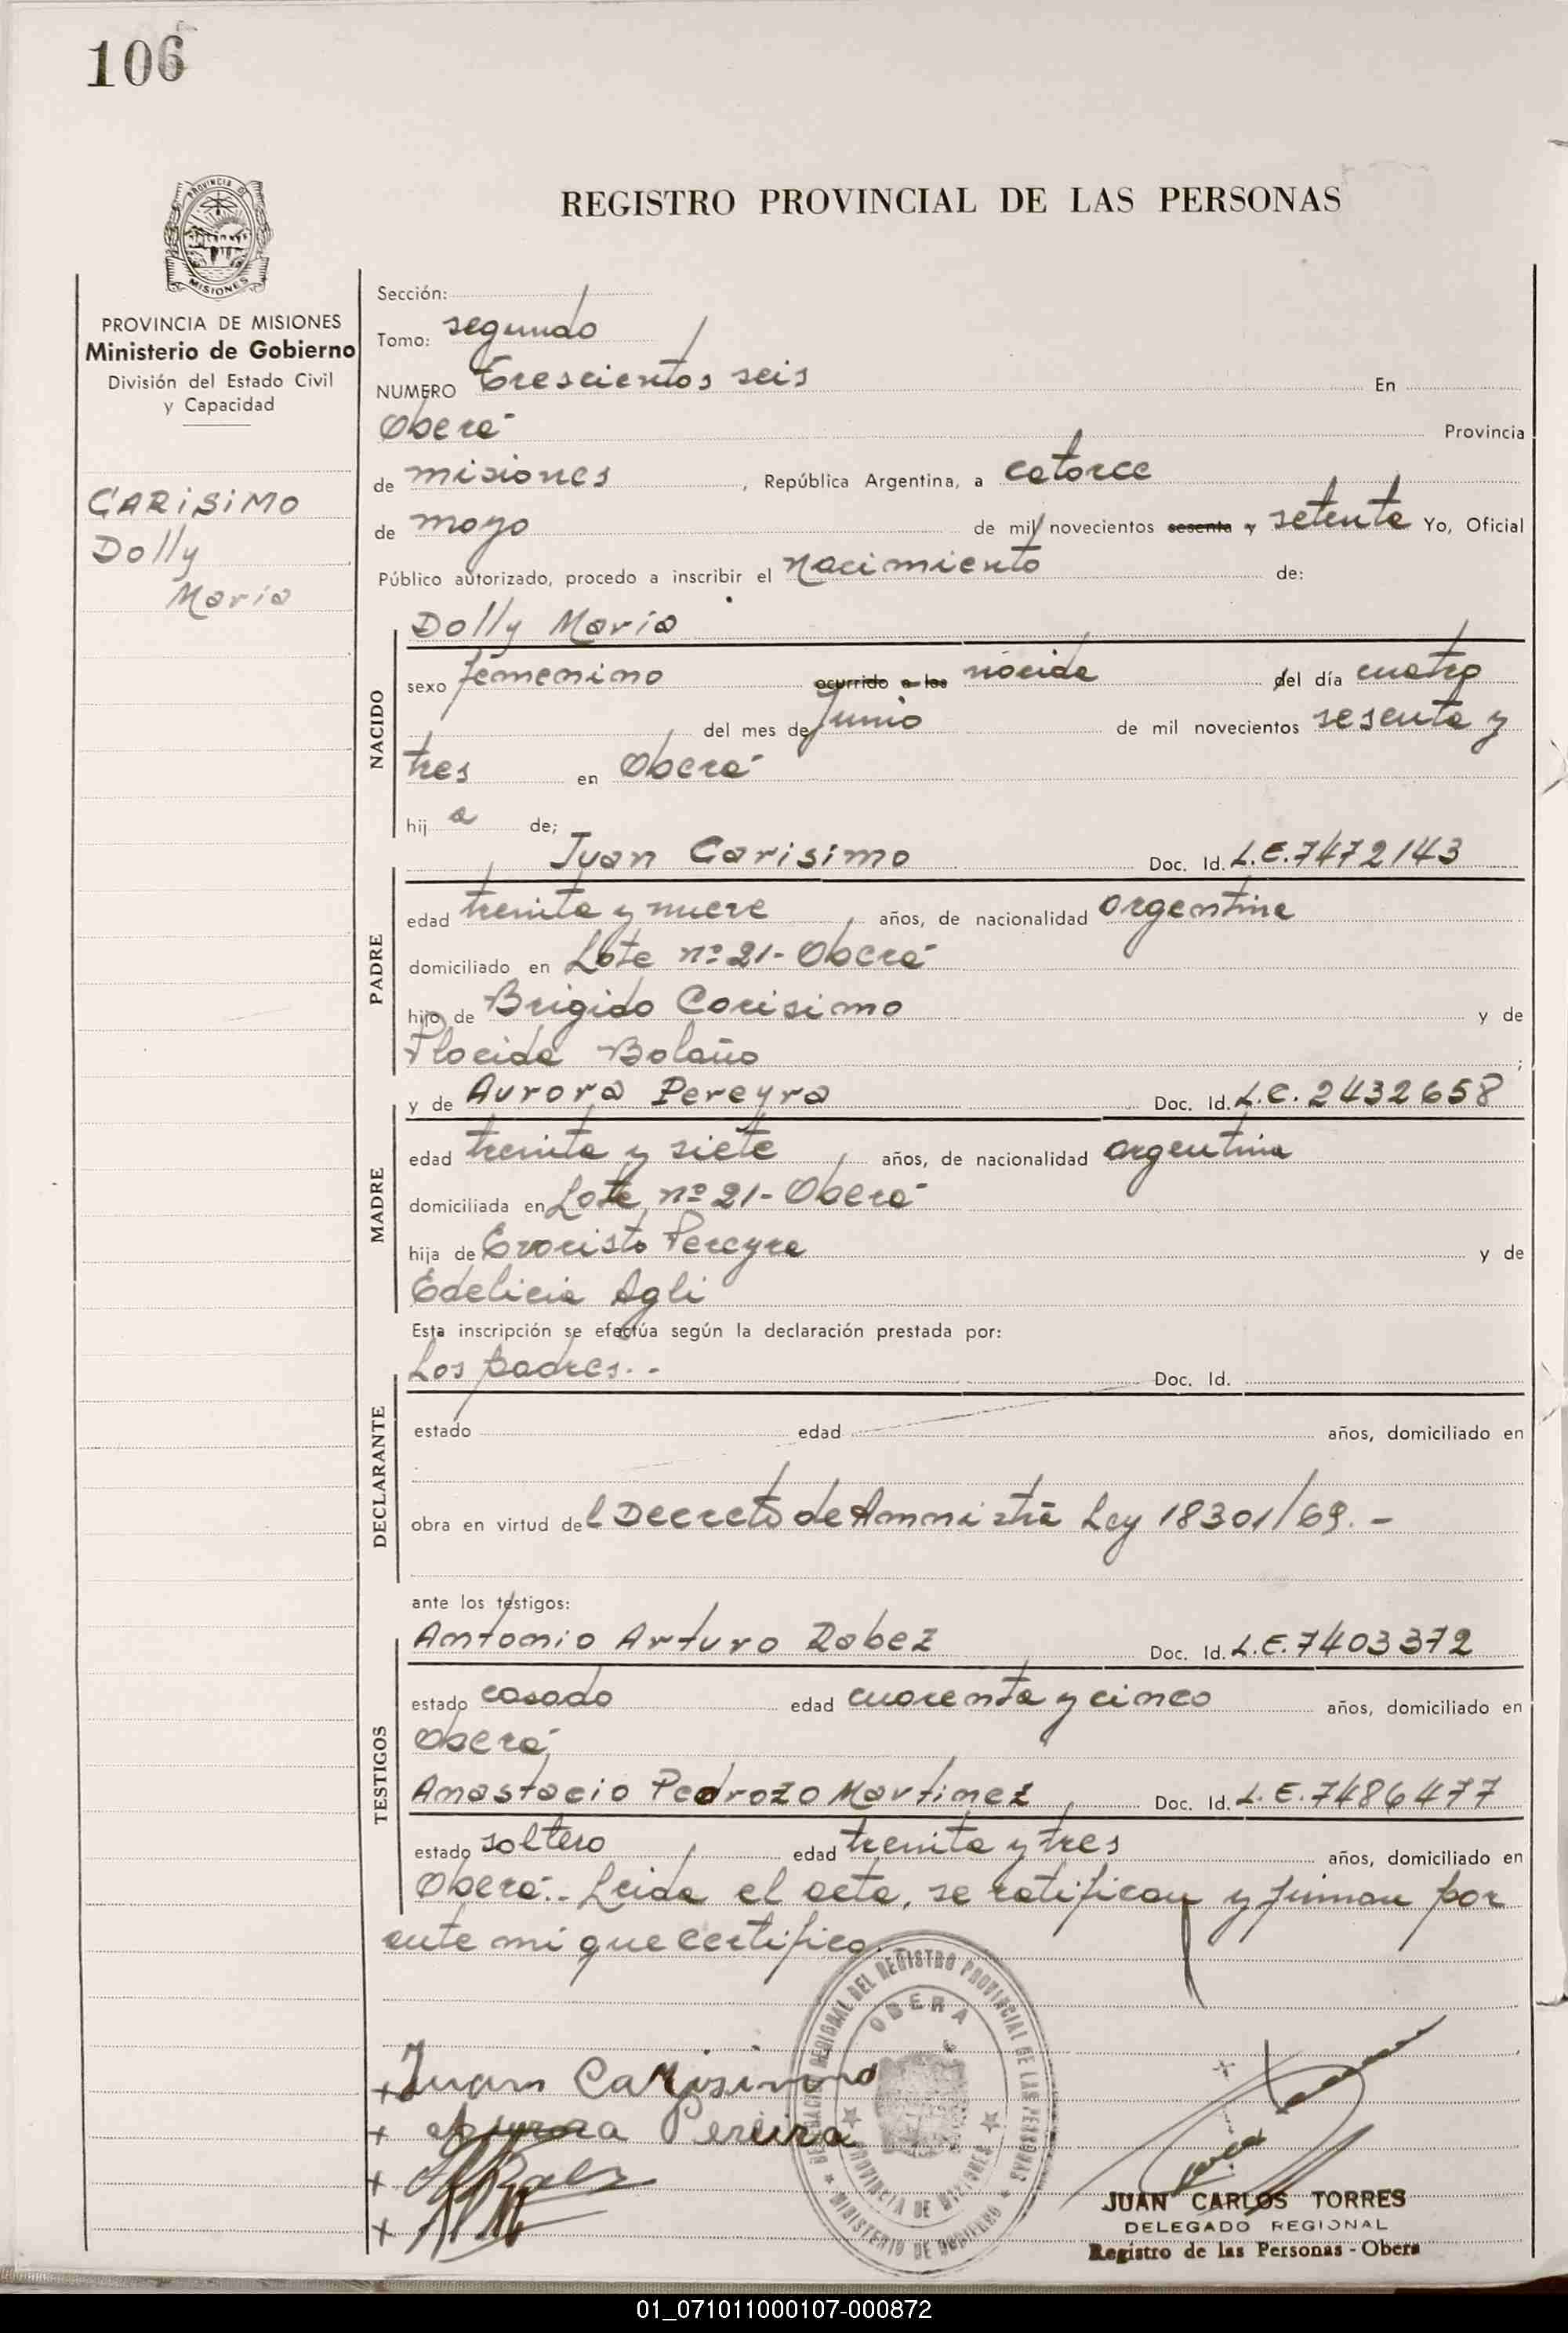 106
REGISTRO PROVINCIAL DE LAS PERSONAS
MISIONES
PROVINCIA DE MISIONES
Ministerio de Gobierno
División del Estado Civil
y Capacidad
CARISIMO
Dolly
Maria
Sección:
Tomo: segundo
NUMERO Trescientos seis En
Oberá Provincia
de misiones, República Argentina, a catorce
de mayo de mil novecientos sesenta y setenta Yo, Oficial
Público autorizado, procedo a inscribir el nacimiento de:
NACIDO
Dolly Maria
sexo femenino ocurrido a las nacida del día cuatro
del mes de Junio de mil novecientos sesenta y
tres en Oberá
hij a de;
PADRE
Juan Carisimo Doc. Id. L.E. 7472143
edad treinta y nueve años, de nacionalidad argentina
domiciliado en Lote nº 21 - Oberá
hijo de Brigido Carisimo y de
Placida Bolaño ;
MADRE
y de Aurora Pereyra Doc. Id. L.C. 2432658
edad treinta y siete años, de nacionalidad argentina
domiciliada en Lote nº 21 - Oberá
hija de Evaristo Pereyra y de
Edelicia Agli
Esta inscripción se efectúa según la declaración prestada por:
DECLARANTE
Los padres. - Doc. Id.
estado edad años, domiciliado en
obra en virtud del Decreto de Amnistia Ley 18301/69. -
ante los testigos:
TESTIGOS
Antonio Arturo Dabez Doc. Id. L.E. 7403372
estado casado edad cuarenta y cinco años, domiciliado en
Oberá
Anastacio Pedrozo Martinez Doc. Id. L.E. 7486477
estado soltero edad treinta y tres años, domiciliado en
Oberá.- Leida el acta, se ratifican y firman por
ante mi que certifico.
+ Juan Carisimo
+ Aurora Pereira
+
+
DELEGACION REGIONAL DEL REGISTRO PROVINCIAL DE LAS PERSONAS
OBERA
PROVINCIA DE MISIONES
MINISTERIO DE GOBIERNO
JUAN CARLOS TORRES
DELEGADO REGIONAL
Registro de las Personas - Obera
01_071011000107-000872